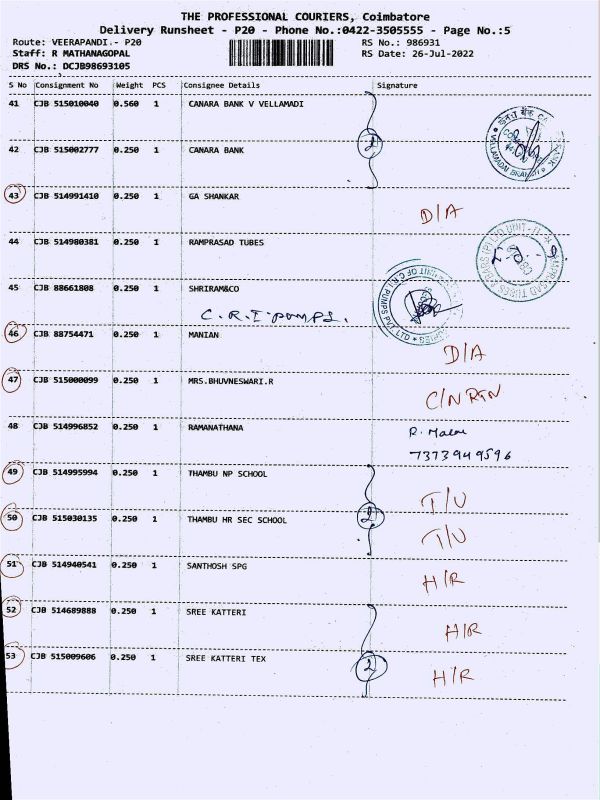 THE PROFESSIONAL COURIERS, Coimbatore
Delivery Runsheet - P20 - Phone No.:0422-3505555 - Page No.:5
Route: VEERAPANDI.- P20 RS No.: 986931
Staff: R MATHANAGOPAL RS Date: 26-Jul-2022
DRS No.: DCJB98693105
S No Consignment No Weight PCS Consignee Details Signature
41 CJB 515010040 0.560 1 CANARA BANK V VELLAMADI
2
42 CJB 515002777 0.250 1 CANARA BANK
43 CJB 514991410 0.250 1 GA SHANKAR D/A
44 CJB 514980381 0.250 1 RAMPRASAD TUBES
45 CJB 88661808 0.250 1 SHRIRAM&CO
C.R.I-PUMPS.
46 CJB 88754471 0.250 1 MANIAN D/A
47 CJB 515000099 0.250 1 MRS.BHUVNESWARI.R C/N RTN
48 CJB 514996852 0.250 1 RAMANATHANA R.
7373949596
49 CJB 514995994 0.250 1 THAMBU NP SCHOOL T/U
50 CJB 515030135 0.250 1 THAMBU HR SEC SCHOOL 2 T/U
51 CJB 514940541 0.250 1 SANTHOSH SPG H/R
52 CJB 514689888 0.250 1 SREE KATTERI H/R
53 CJB 515009606 0.250 1 SREE KATTERI TEX 2 H/R